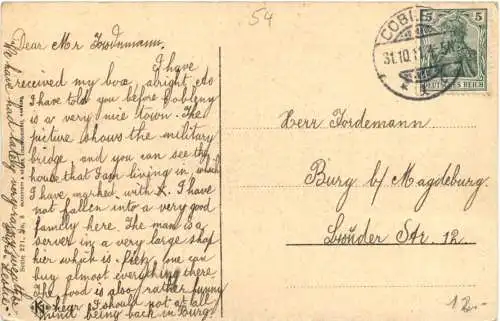 54
Dear Mr Tordemann.
I have
received my box alright. As
I have told you before Coblenz
is a very nice town. The
picture shows the military
bridge, and you can see the
house that I am living in, which
I have marked with X. I have
not fallen into a very good
family here. The man is a
server in a very large shop
her which is. one can
buy almost everything there
the food is also rather funny
hear. I should not at all
mind being back in Burg.
We have had lately very
COBLENZ
31.10.11
5 5
DEUTSCHES REICH
Herr Tordemann.
Burg b/ Magdeburg.
Str. 12.
12.-